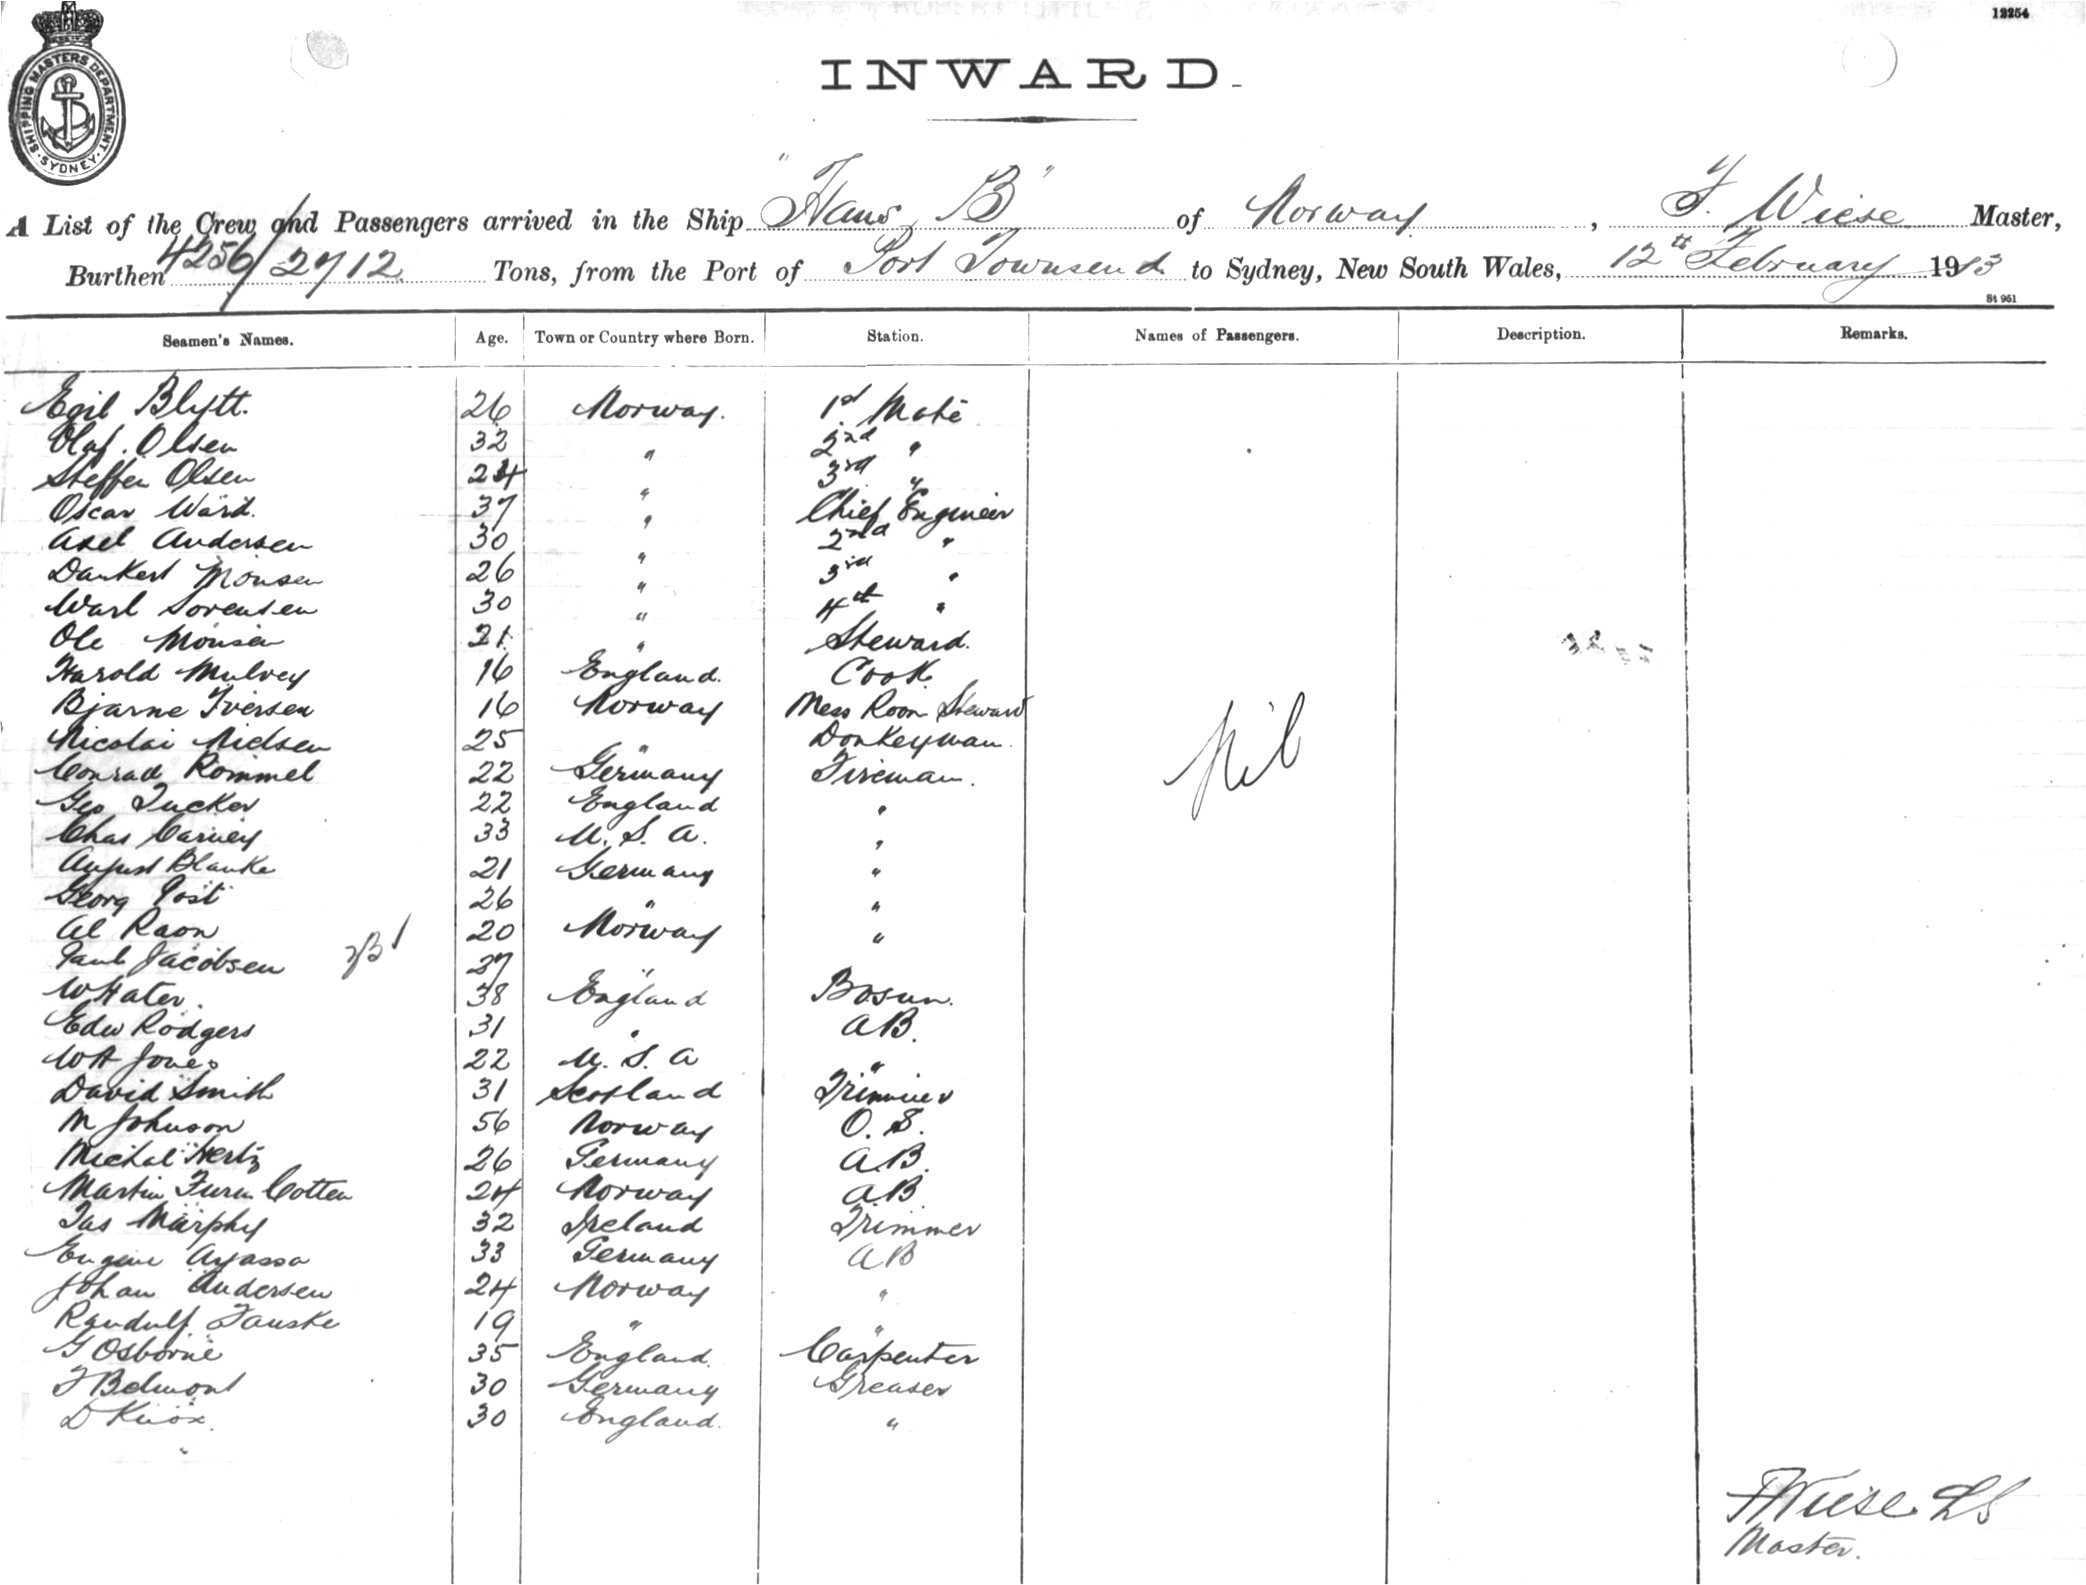 12254
SHIPPING MASTERS DEPARTMENT
SYDNEY
INWARD.
A List of the Crew and Passengers arrived in the Ship "Hans B" of Norway, F. Wiese Master,
Burthen 4256/2712 Tons, from the Port of Port Townsend to Sydney, New South Wales, 12th February 1913
St 951
Seamen's Names. Age. Town or Country where Born. Station. Names of Passengers. Description. Remarks.
Egil Blytt. 26 Norway. 1st Mate
Olaf. Olsen 32 " 2nd "
Steffen Olsen 24 " 3rd "
Oscar Ward. 37 " Chief Engineer
Axel Andersen 30 " 2nd "
Dankert Monsen 26 " 3rd "
Sorensen 30 " 4th "
Ole Monsen 21 " Steward.
Harold Mulvey 16 England. Cook.
Bjarne Iversen 16 Norway Mess Room Steward
Nicolai Nielsen 25 " Donkeyman.
Nil
Conrad Rommel 22 Germany Fireman.
Geo Tucker 22 England "
Chas Carney 33 U. S. A. "
August Blanke 21 Germany "
Georg Post 26 " "
Al Raon 20 Norway "
Paul Jacobsen 27 "
W Hater. 38 England Bosun.
Edw Rodgers 31 " AB.
WH Jones 22 U. S. A "
David Smith 31 Scotland Trimmer
M Johnson 56 Norway O. S.
Michal Hertz 26 Germany AB.
Martin Furu Cotten 24 Norway AB
Jas Murphy 32 Ireland Trimmer
Eugene Ayassa 33 Germany AB
Johan Andersen 24 Norway "
Randulf Fauske 19 " "
G Osborne 35 England. Carpenter
F Belmont 30 Germany Greaser
D Knox. 30 England. "
F Wiese
Master.